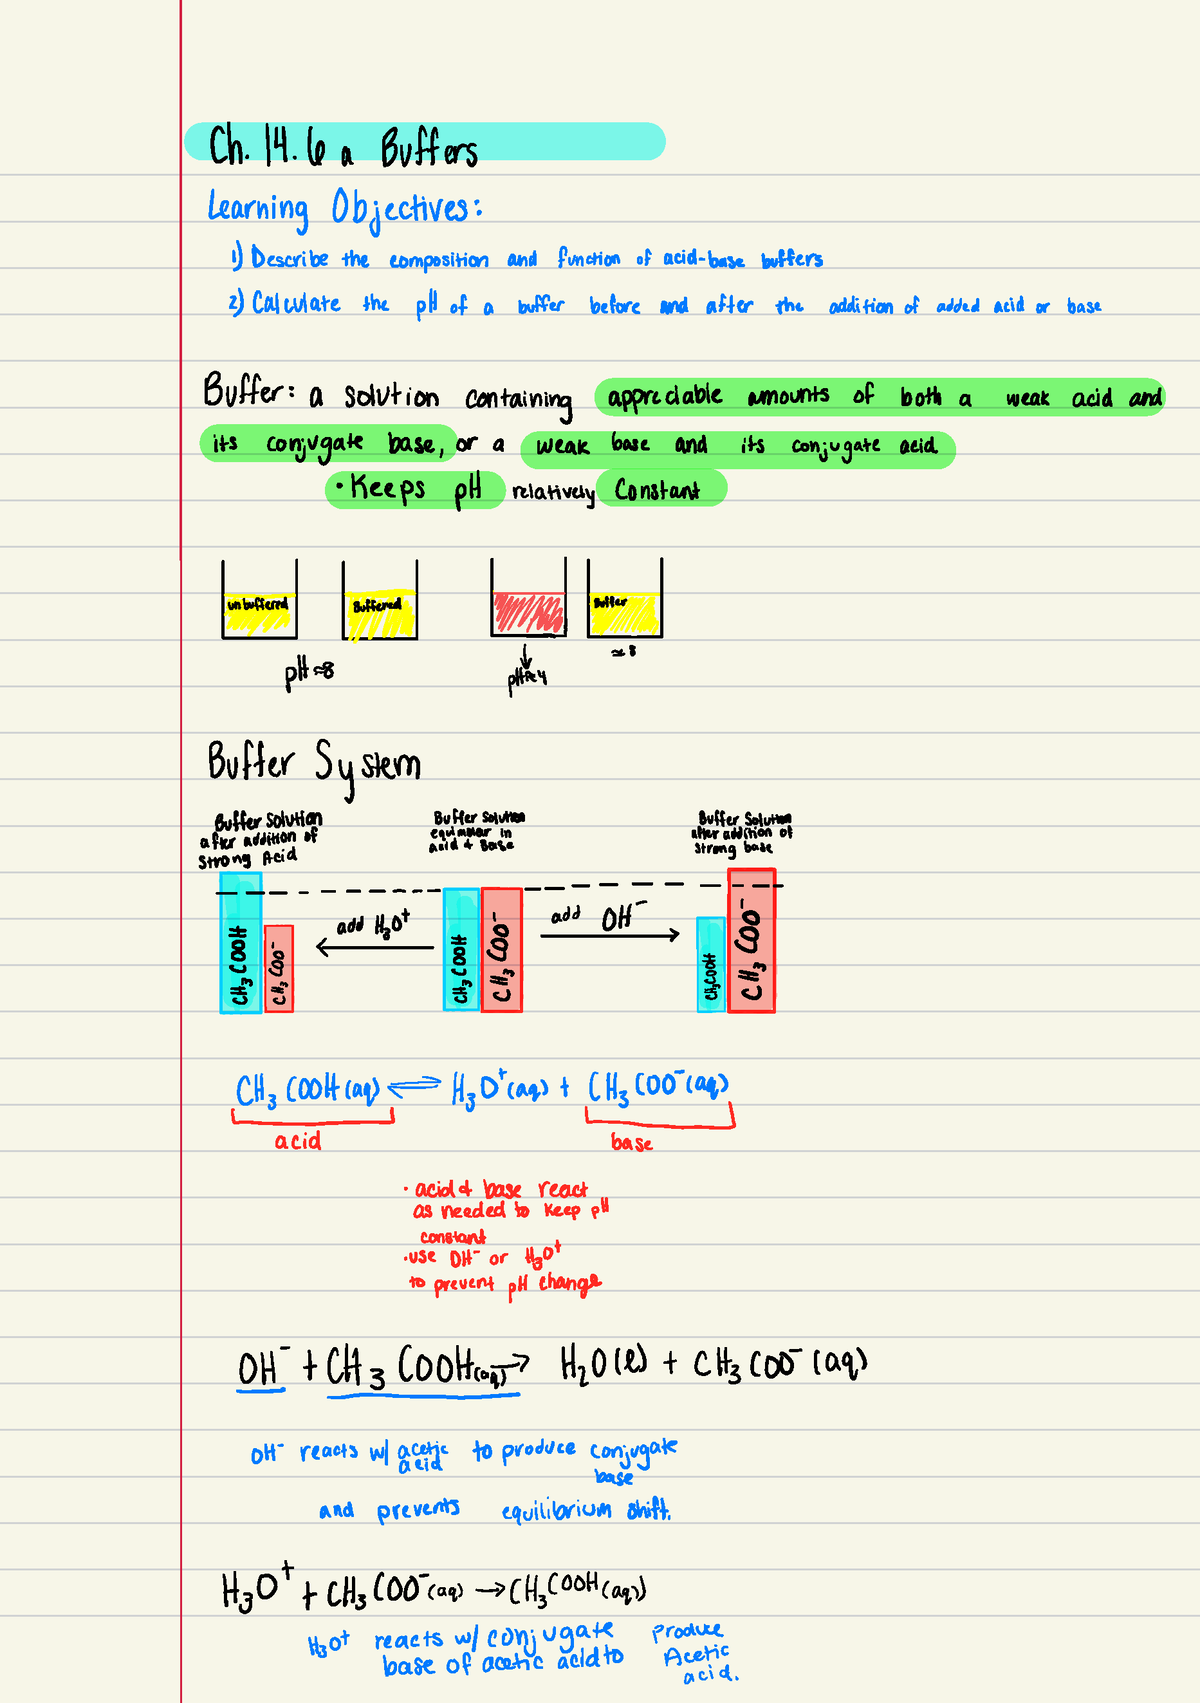 Ch. 14.6 a Buffers
Learning Objectives:
1) Describe the composition and function of acid-base buffers
2) Calculate the pH of a buffer before and after the addition of added acid or base
Buffer: a solution containing appreciable amounts of both a weak acid and
its conjugate base, or a weak base and its conjugate acid
• Keeps pH relatively constant
unbuffered Buffered Buffer
pH≈8 pH≈4 ≈8
Buffer System
Buffer Solution
after addition of
Strong Acid
Buffer Solution
equimolar in
acid & Base
Buffer Solution
after addition of
Strong base
add H₃O⁺
add OH⁻
CH₃COOH CH₃COO⁻
CH₃COOH CH₃COO⁻
CH₃COOH CH₃COO⁻
CH₃COOH(aq) ⇌ H₃O⁺(aq) + CH₃COO⁻(aq)
acid base
• acid & base react
as needed to keep pH
constant
• use OH⁻ or H₃O⁺
to prevent pH change
OH⁻ + CH₃COOH(aq) → H₂O(l) + CH₃COO⁻(aq)
OH⁻ reacts w/ acetic acid to produce conjugate base
and prevents equilibrium shift.
H₃O⁺ + CH₃COO⁻(aq) → CH₃COOH(aq)
H₃O⁺ reacts w/ conjugate
base of acetic acid to
Produce
Acetic
acid.